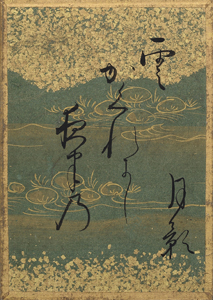 雲
かくれにし
夜半乃
月影